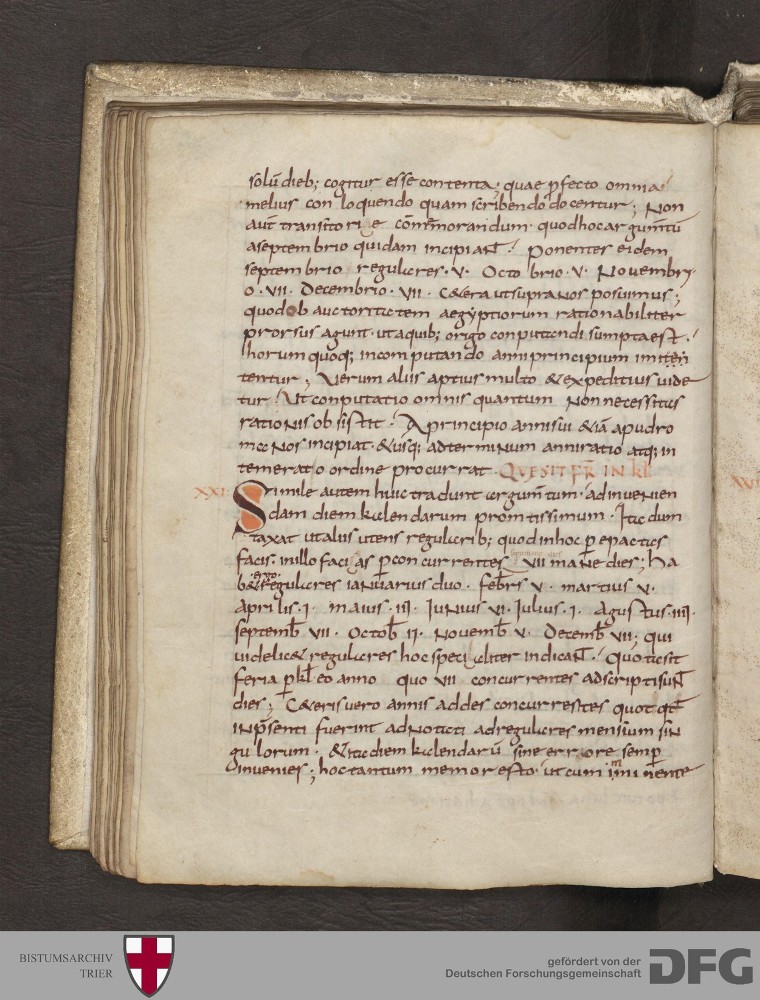 solū dieb; cogitur esse contenta; quae ꝑfecto omnia
melius conloquendo quam scribendo docentur; Non
aut̄ transitoriae com̄emorandum quod hoc argum̄tū
a septembrio quidam incipiant. Ponentes eidem
septembrio regulares · v · Octobrio · v · Novembri
o · vii · Decembrio · vii · C&era ut supra nos posuimus;
quod ob auctoritatem aegyptiorum rationabiliter
prorsus agunt · ut a quib; origo conputandi sumpta est ·
horum quoq; in computando anni principium imiten
tentur; Verum aliis aptius multo & expeditius uide
tur · Ut conputatio omnis quantum non necessitas
rationis obsistit · A principio anni sui &iā apud ro
manos incipiat · & usq; ad terminum anni ratio atq; in
temerato ordine procurrat · QUE SIT FR̄ IN KL̄
XXI Simile autem huic tradunt argum̄tum · ad inuenien
dam diem kalendarum promtissimum · Ita dum
taxat ut aliis utens regularib; quod in hoc ꝑ epactas
facis · in illo facias ꝑ concurrentes vii mane dies; Ha
b& ergo regulares ianuarius duo · feb̄rs v · martius v ·
aprilis · i · maius · iii · iunius vi · iulius · i · agustus · iiii ·
septemb̄ vii · octob̄ ii · novemb̄ v · decemb̄ vii; qui
uidelic& regulares hoc specialiter indicant · Quota sit
feria ꝑ kl̄ eo anno quo vii concurrentes adscripti sunt
dies; C&eris uero annis addes concurrentes quotquot
in p̄senti fuerint adnotati ad regulares mensium sin
gulorum · & ita diem kalendarū sine errore semꝑ
inuenies; hoc tantum memor esto · ut cum imminente
BISTUMSARCHIV
TRIER
gefördert von der
Deutschen Forschungsgemeinschaft
DFG